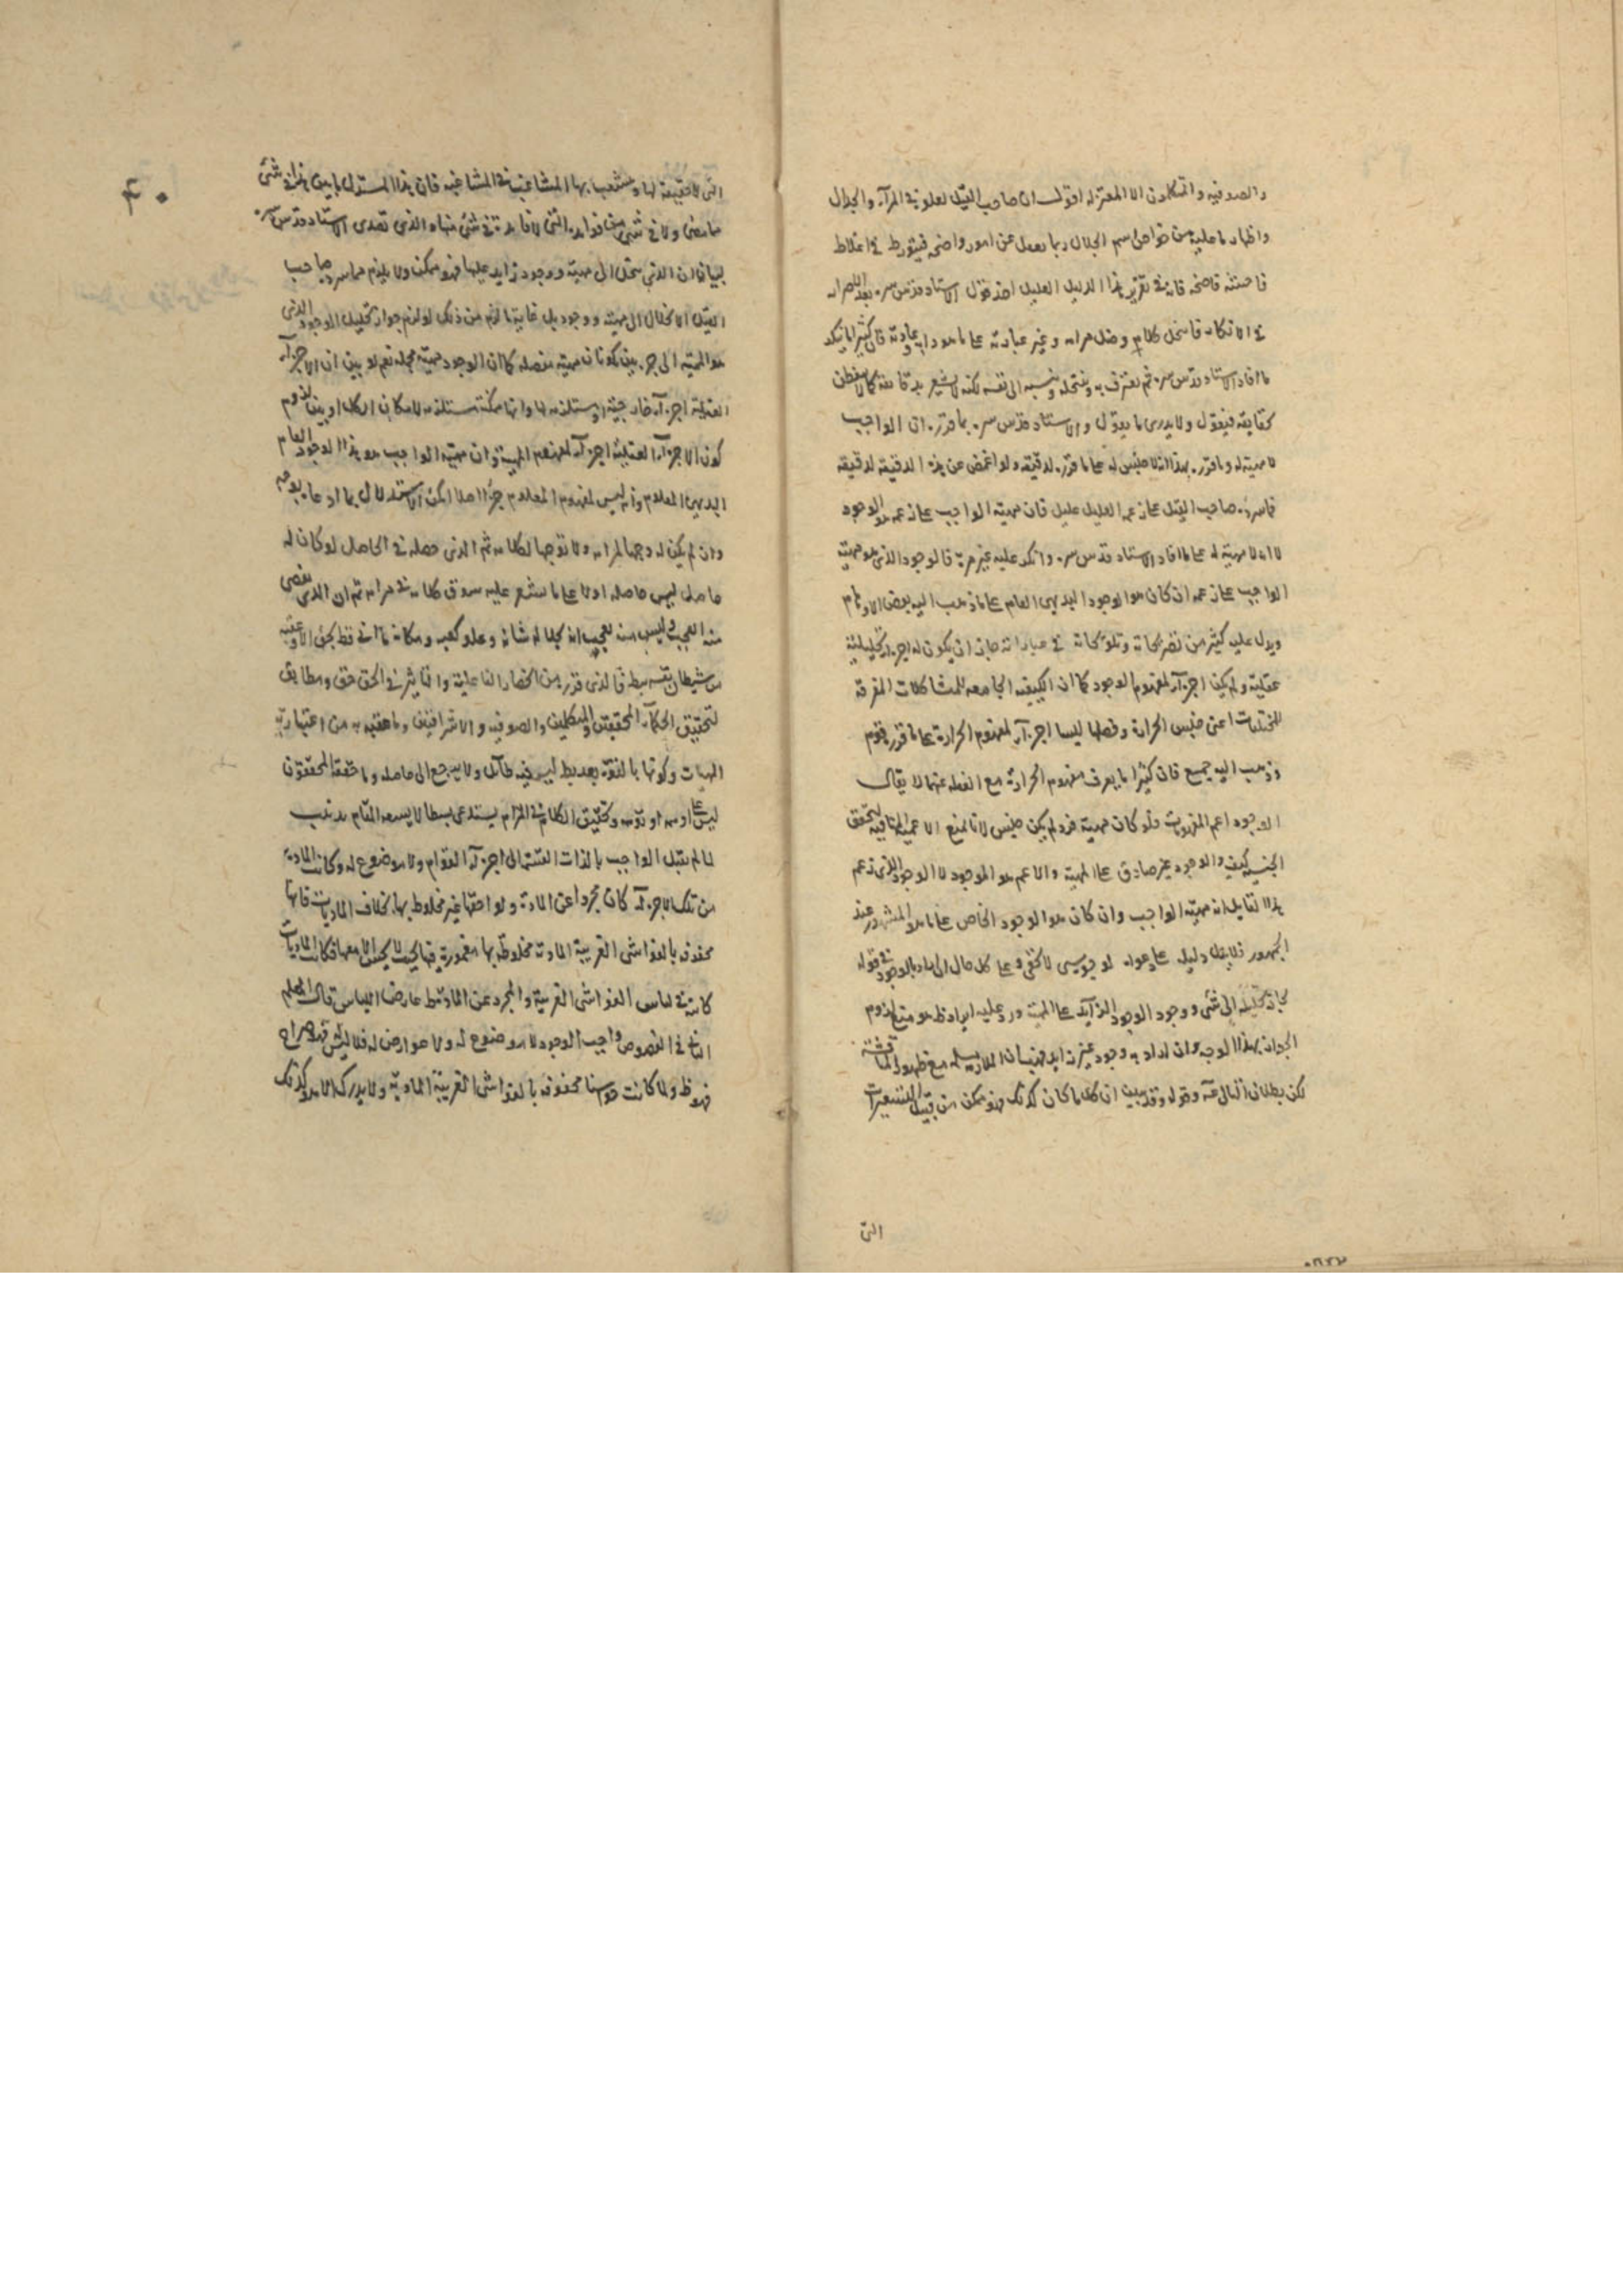 والصوفيه والمتكلمون الا المعتزله اقول ان صاحب القيل لعلوه في المرآء والجدال
واظهار ما عليه من خواص اسم الجلال ربما يعدل عن امور واضحه فيتورط في اغلاط
فاحشه فاضحه فانه في تقرير هذا الدليل العليل اخذ قول الاستاد قدس سره بعد الاصرار
في الانكار فانتحل كلامه وضل مرامه وغير عبارته على ما هو دابه وعادته فان كثيرا ما ينكر
ما افاد الاستاد قدس سره ثم يعترف به وينتحله وينسبه الى نفسه لكنه لا يشعر بدقايقه كما لا يتفطن
بحقايقه فيقول ولا يدرى ما يقول والاستاد قدس سره بما قرره ان الواجب
لا مهية له وما قرره بهذا انه لا جنس له على ما قرره لدقيقه ولو اغمض عن هذه الدقيقه لدقيقه
فما سرده صاحب القيل على زعمه العليل عليل فان مهية الواجب على زعمه هو الوجود
لا انه لا مهية له على ما افاد الاستاد قدس سره وانكر عليه غير مرة فالوجود الذى هو مهية
الواجب على زعمه ان كان هو الوجود البديهى العام على ما ذهب اليه بعض الاوهام
ويدل عليه كثير من تصريحاته وتلويحاته في عباراته جاز ان يكون له اجزاء تحليلية
عقلية ولم يكن اجزآء لمفهوم الوجود كما ان الكيفيه الجامعه للمشاكلات المفرقه
للمختلفات اعنى جنس الحرارة وفصلها ليسا اجزآء لمفهوم الحرارة على ما قرره قوم
وذهب اليه جميع فان كثيرا ما يعرف مفهوم الحرارة مع الغفله عنهما لا يقال
الوجود اعم المفهومات فلو كان مهية فرد لم يكن جنس لانا نمنع الاعمية المنافيه لتحقق
الجنس كيف والوجود غير صادق على المهية والاعم هو الموجود لا الوجود الذى زعم
هذا القايل انه مهية الواجب وان كان هو الوجود الخاص على ما هو المشهور عند
الجمهور فلا بد دليل على دعواه لا يخفى وعلى كل حال ان اراد بالوجود في قوله
جاز تحليله الى شى ووجود الوجود الزآيد على المهية ورد عليه ايراد ظ هو منع لزوم
الجواز بهذا الوجه وان اراد به وجود غير زايد فهنا ان الملازمة مسلمه مع ظهور المناقشة
لكن بطلان التالى مم وقوله وقد بين ان كل ما كان كذلك فهو ممكن من قبيل التشعيرات
التى
التى لا حقيقة لها ويتشعب بها المشاغب في المشاغبه فان هذا المستدل لم يبين هذا في شى
ما مضى ولا في شى من فوايده التى لا فايدة في شى منها والذى تصدى الاستاد قدس سره
لبيانه ان الذى ينحل الى مهية ووجود زايد عليها فهو ممكن ولا يلزم مما سرده صاحب
القيل الانحلال الى مهية ووجود بل غاية ما لزم من ذلك لو لزم جواز تحليل الوجود الذى
هو المهية الى جزءين يكونان مهية مفصله كما ان الوجود مهية مجمله نعم لو بين ان الاجزآء
العقلية اجزآء خارجية او مستلزمه لها وانها ممكنة مستلزمه لامكان الكل او بين لزوم
كون الاجزآء العقلية اجزآء لمفهوم المهية وان مهية الواجب هو هذا الوجود العام
البديهى المعلوم وانه ليس لمفهوم المعلوم جزءا اصلا امكن الاستدلال بما ادعاه بوجه
وان لم يكن له وجها لمرامه ولا توجها لكلامه ثم الذى حصله في الحاصل لو كان له
حاصل ليس حاصله اولا على ما يشعر عليه سوق كلامه في مرامه ثم ان الذى يقضى
منه العجب وليس منه بعجيب انه بجلالة شانه وعلو كعبه ومكانه ما اتى قط بحق الا وعقبه
من شيطان نفسه بط فالذى قرره من انحصار الفاعلية والتاثير في الحق حق ومطابق
لتحقيق الحكمآء المحققين والمتكلمين والصوفيه والاشراقيين وما عقبه به من اعتبارية
المهيات وكونها بالقوة بعد بط ليس فيه طائل ولا يرجع الى حاصل وما حققه المحققون
ليس على ما وسمه او توهمه وتحقيق الكلام في المرام يستدعى بسطا لا يسعه المقام تذنيب
لما لم يقبل الواجب بالذات القسمة الى اجزآء القوام ولا موضوع له وكانت المادة
من تلك الاجزآء كان مجردا عن المادة ولواحقها غير مخلوط بها بخلاف الماديات فانها
محفوفه بالغواشى الغريبة المادية مخلوطة بها مغمورة فيها بحيث لا يحس الا معها فكانت الماديات
كانها في لباس الغواشى الغريبة والمجرد عن المادة عارضا اللباس قال المعلم
الثانى في الفصوص واجب الوجود لا موضوع له ولا عوارض له فلا لبس له فهو صراح
فهو ظ ولما كانت حواسنا محفوفه بالغواشى الغريبة المادية ولا يدرك الا ما هو كذلك